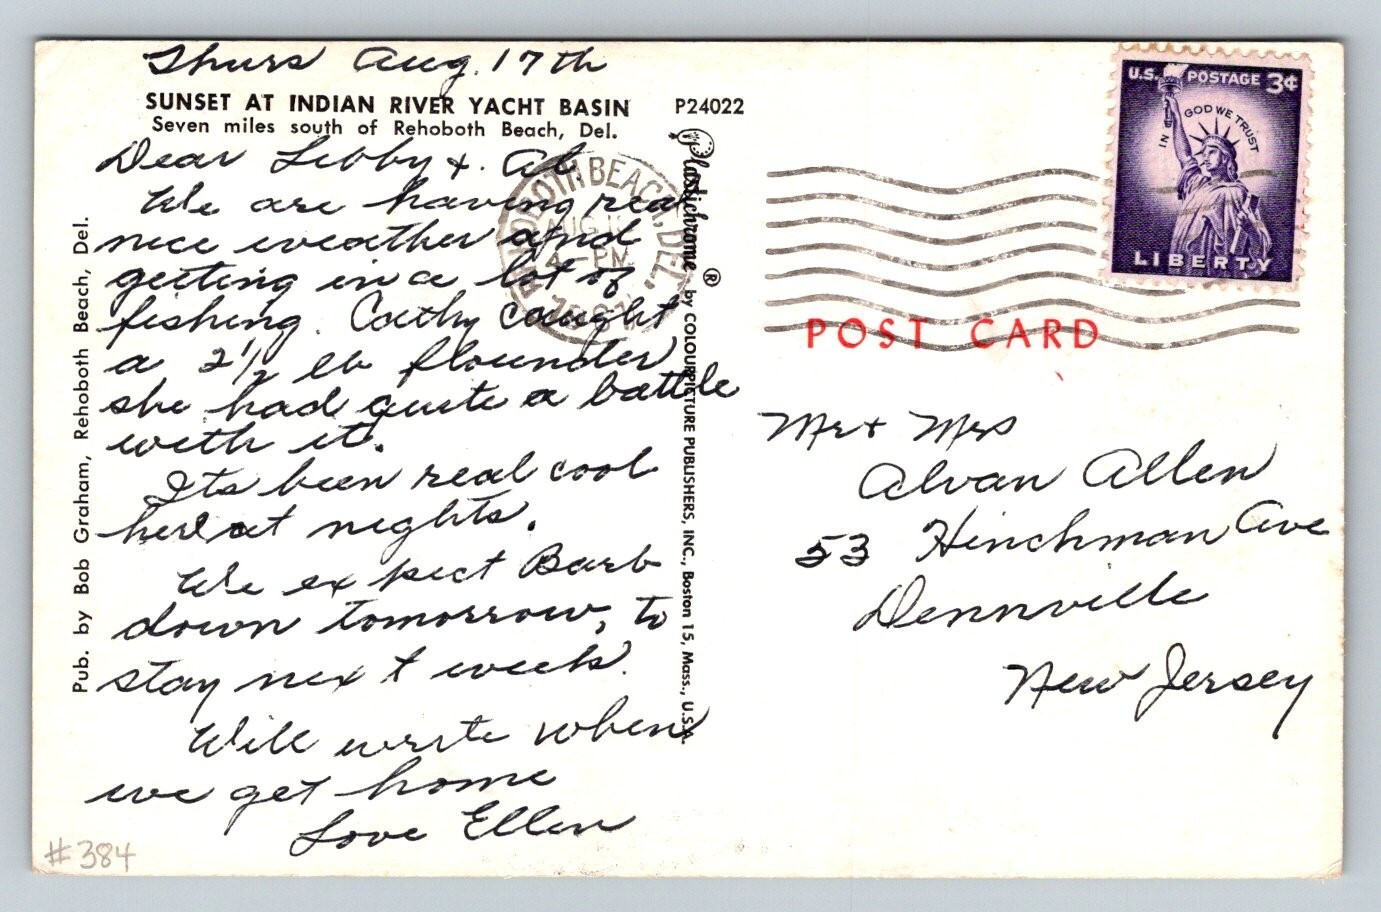 Thurs Aug. 17th
SUNSET AT INDIAN RIVER YACHT BASIN
Seven miles south of Rehoboth Beach, Del.
P24022
Dear Libby & Al
We are having real
nice weather and
getting in a lot of
fishing. Cathy caught
a 2½ lb flounder
she had quite a battle
with it.
Its been real cool
here at nights.
We expect Barb
down tomorrow, to
stay next week.
Will write when
we get home
Love Ellen
#384
Pub. by Bob Graham, Rehoboth Beach, Del.
Plastichrome ® by COLOURPICTURE PUBLISHERS, INC., Boston 15, Mass., U.S.A.
REHOBOTH BEACH, DEL.
AUG
4-PM
U.S. POSTAGE 3¢
IN GOD WE TRUST
LIBERTY
POST CARD
Mr & Mrs
Alvan Allen
53 Hinchman Ave
Dennville
New Jersey